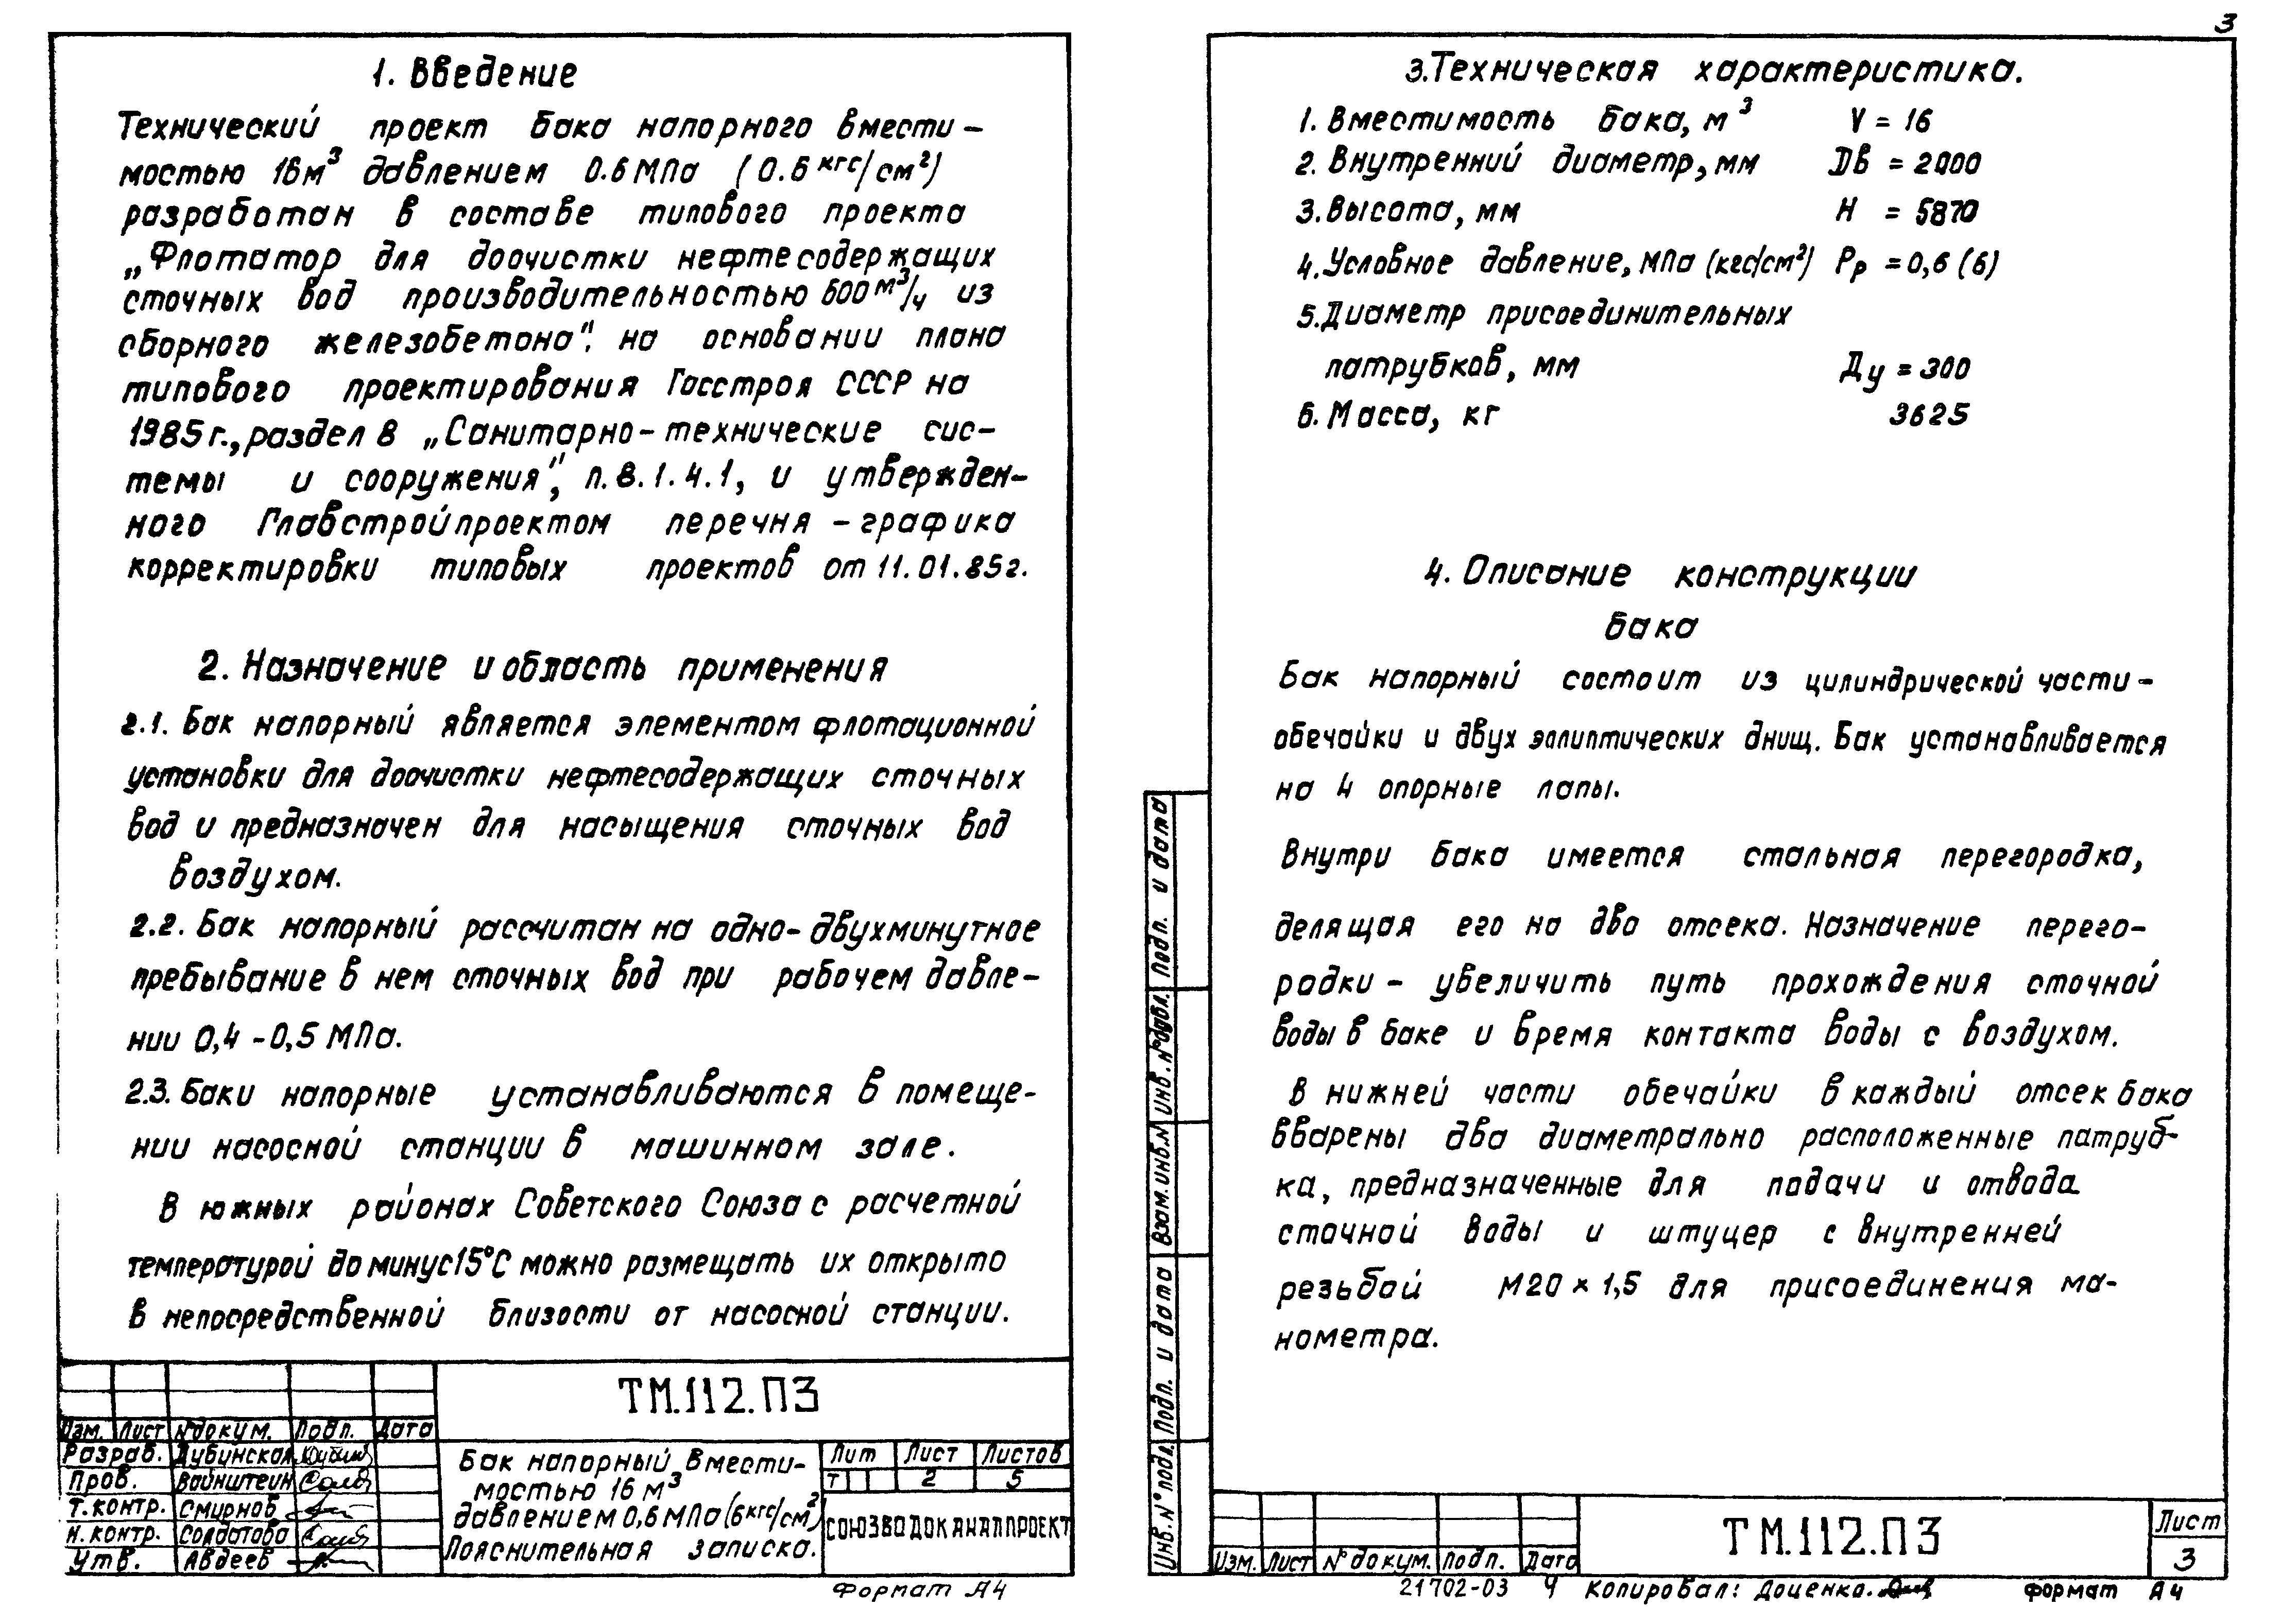 1. Введение
Технический проект бака напорного вмести-
мостью 16м³ давлением 0.6 МПа (0.6 кгс/см²)
разработан в составе типового проекта
„Флотатор для доочистки нефтесодержащих
сточных вод производительностью 600 м³/ч из
сборного железобетона". на основании плана
типового проектирования Госстроя СССР на
1985 г., раздел 8 „Санитарно-технические сис-
темы и сооружения", п.8.1.4.1, и утвержден-
ного Главстройпроектом перечня-графика
корректировки типовых проектов от 11.01.85г.
2. Назначение и область применения
2.1. Бак напорный является элементом флотационной
установки для доочистки нефтесодержащих сточных
вод и предназначен для насыщения сточных вод
воздухом.
2.2. Бак напорный рассчитан на одно-двухминутное
пребывание в нем сточных вод при рабочем давле-
нии 0,4-0,5 МПа.
2.3. Баки напорные устанавливаются в помеще-
нии насосной станции в машинном зале.
В южных районах Советского Союза с расчетной
температурой до минус 15°С можно размещать их открыто
в непосредственной близости от насосной станции.
ТМ.112.ПЗ
Изм. Лист № докум. Подп. Дата
Разраб. Дубинская
Пров. Вайнштейн
Т.контр. Смирнов
Н.контр. Солдатова
Утв. Авдеев
Бак напорный вмести-
мостью 16 м³
давлением 0,6 МПа (6кгс/см²)
Пояснительная записка.
Лит Лист Листов
Т 2 5
СОЮЗВОДОКАНАЛПРОЕКТ
Формат А4
3
3. Техническая характеристика.
1. Вместимость бака, м³ V = 16
2. Внутренний диаметр, мм Dв = 2000
3. Высота, мм Н = 5870
4. Условное давление, МПа (кгс/см²) Рр = 0,6 (6)
5. Диаметр присоединительных
патрубков, мм Ду = 300
6. Масса, кг 3625
4. Описание конструкции
бака
Бак напорный состоит из цилиндрической части-
обечайки и двух эллиптических днищ. Бак устанавливается
на 4 опорные лапы.
Внутри бака имеется стальная перегородка,
делящая его на два отсека. Назначение перего-
родки - увеличить путь прохождения сточной
воды в баке и время контакта воды с воздухом.
В нижней части обечайки в каждый отсек бака
вварены два диаметрально расположенные патруб-
ка, предназначенные для подачи и отвода
сточной воды и штуцер с внутренней
резьбой М20 × 1,5 для присоединения ма-
нометра.
Инв. № подл. Подп. и дата Взам. инв. № Инв. № дубл. Подп. и дата
Изм. Лист № докум. Подп. Дата
ТМ.112.ПЗ
Лист
3
21702-03 4 Копировал: Доценко. Формат А4